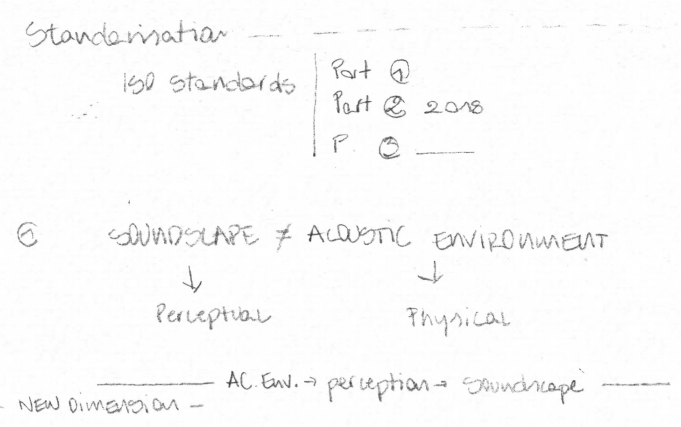 Standarisation
ISO standards
Part ①
Part ② 2018
P. ③
SOUNDSCAPE ≠ ACOUSTIC ENVIRONMENT
↓ ↓
Perceptual Physical
AC. Env. → perception → soundscape
NEW Dimension -